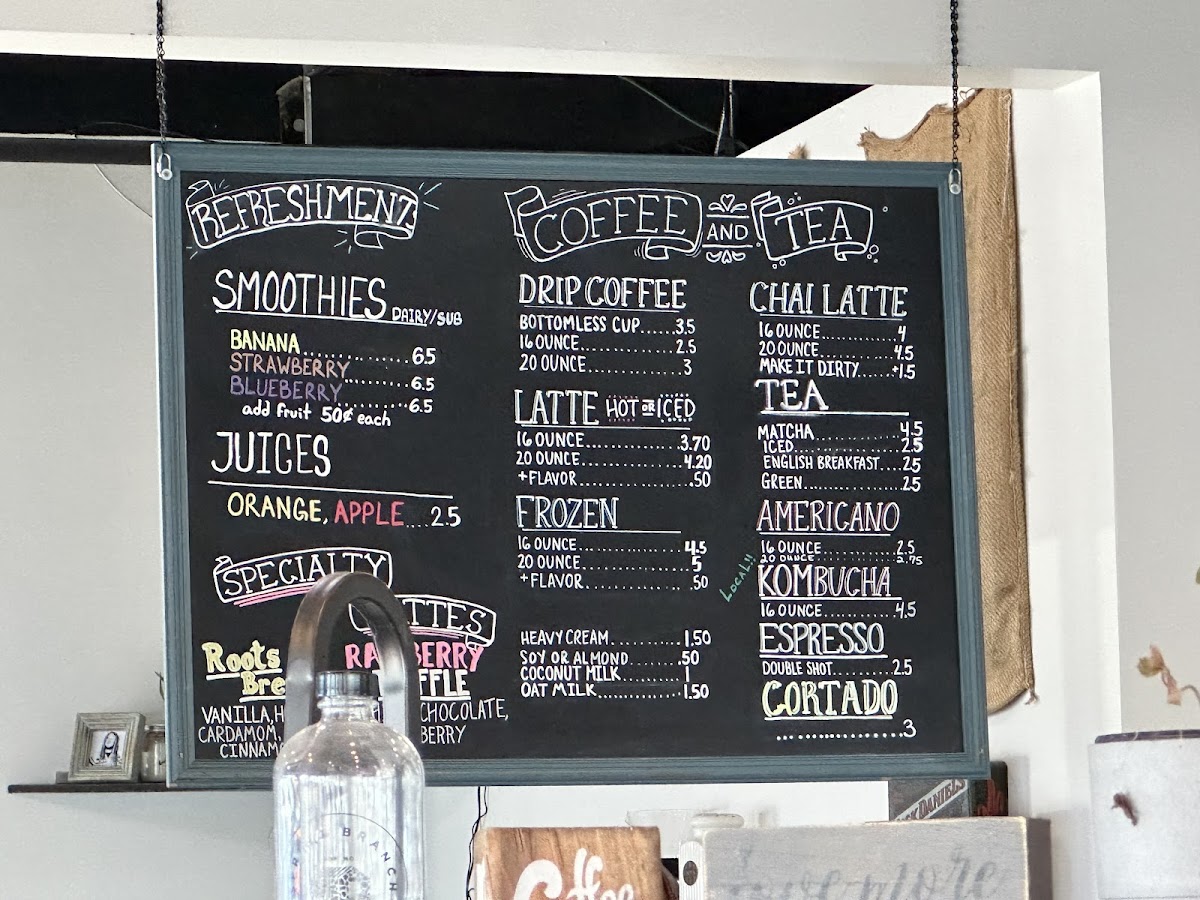 REFRESHMENTS
SMOOTHIES DAIRY/SUB
BANANA..............65
STRAWBERRY.........6.5
BLUEBERRY..........6.5
add fruit 50¢ each
JUICES
ORANGE, APPLE....2.5
SPECIALTY
Roots
VANILLA,
CARDAMOM,
COFFEE AND TEA
DRIP COFFEE
BOTTOMLESS CUP......3.5
16 OUNCE...............2.5
20 OUNCE...............3
LATTE HOT OR ICED
16 OUNCE...............3.70
20 OUNCE...............4.20
+FLAVOR................50
FROZEN
16 OUNCE................4.5
20 OUNCE................5
+FLAVOR................50
HEAVY CREAM..........1.50
SOY OR ALMOND........50
COCONUT MILK..........1
OAT MILK...............1.50
CHAI LATTE
16 OUNCE...............4
20 OUNCE..............4.5
MAKE IT DIRTY......+1.5
TEA
MATCHA...............4.5
ICED...................2.5
ENGLISH BREAKFAST....25
GREEN.................25
AMERICANO
16 OUNCE..............2.5
20 OUNCE..............2.75
LOCAL!!
KOMBUCHA
16 OUNCE............4.5
ESPRESSO
DOUBLE SHOT.........2.5
CORTADO
..................3
JACK DANIEL'S
BRANCH
Coffee
more